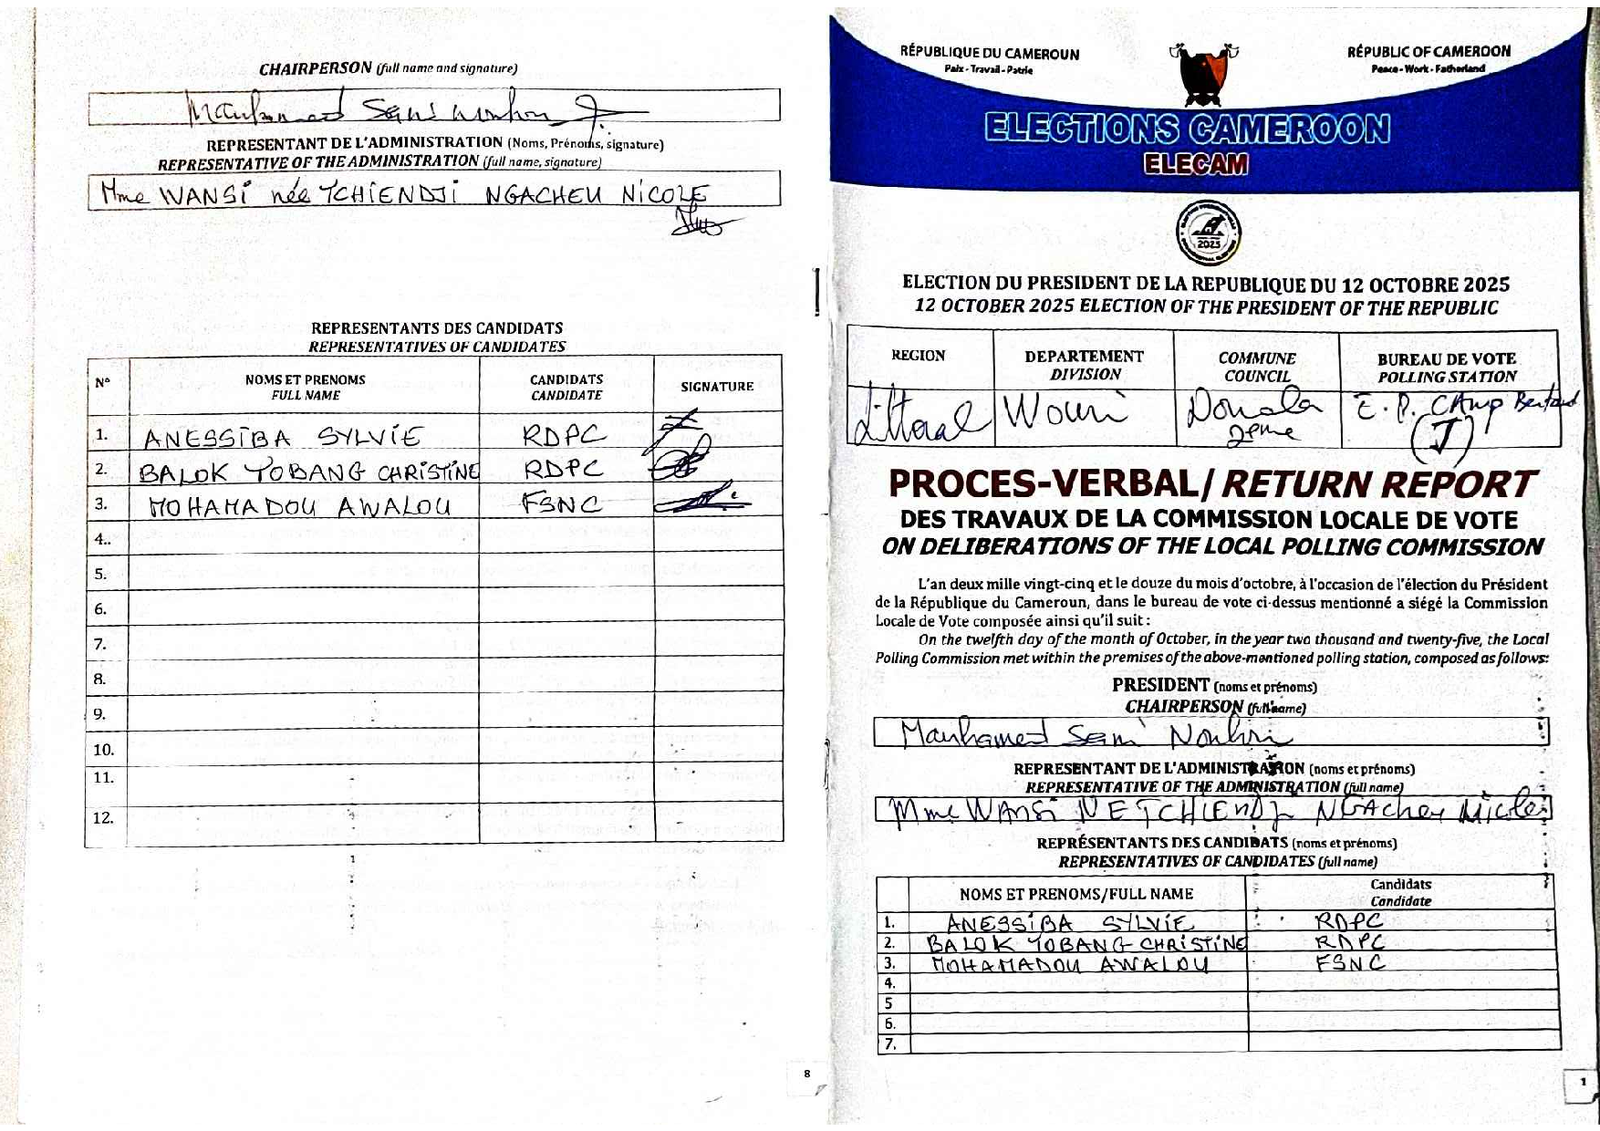 CHAIRPERSON (full name and signature)
Mauhamed Sani Nouhou
REPRESENTANT DE L'ADMINISTRATION (Noms, Prénoms, signature)
REPRESENTATIVE OF THE ADMINISTRATION (full name, signature)
Mme WANSI née TCHIENDJI NGACHEU NICOLE
REPRESENTANTS DES CANDIDATS
REPRESENTATIVES OF CANDIDATES
N° NOMS ET PRENOMS FULL NAME CANDIDATS CANDIDATE SIGNATURE
1. ANESSIBA SYLVIE RDPC
2. BALOK YOBANG CHRISTINE RDPC
3. MOHAMADOU AWALOU FSNC
4..
5.
6.
7.
8.
9.
10.
11.
12.
8
RÉPUBLIQUE DU CAMEROUN
Paix - Travail - Patrie
RÉPUBLIC OF CAMEROON
Peace - Work - Fatherland
ELECTIONS CAMEROON
ELECAM
2025
ELECTION DU PRESIDENT DE LA REPUBLIQUE DU 12 OCTOBRE 2025
12 OCTOBER 2025 ELECTION OF THE PRESIDENT OF THE REPUBLIC
REGION DEPARTEMENT DIVISION COMMUNE COUNCIL BUREAU DE VOTE POLLING STATION
Littoral Wouri Douala 2eme E.P. CAmp Bertaud (J)
PROCES-VERBAL/ RETURN REPORT
DES TRAVAUX DE LA COMMISSION LOCALE DE VOTE
ON DELIBERATIONS OF THE LOCAL POLLING COMMISSION
L'an deux mille vingt-cinq et le douze du mois d'octobre, à l'occasion de l'élection du Président
de la République du Cameroun, dans le bureau de vote ci-dessus mentionné a siégé la Commission
Locale de Vote composée ainsi qu'il suit :
On the twelfth day of the month of October, in the year two thousand and twenty-five, the Local
Polling Commission met within the premises of the above-mentioned polling station, composed as follows:
PRESIDENT (noms et prénoms)
CHAIRPERSON (full name)
Mauhamed Sani Nouhou
REPRESENTANT DE L'ADMINISTRATION (noms et prénoms)
REPRESENTATIVE OF THE ADMINISTRATION (full name)
Mme WANSI NEE TCHIENDJI NGAcheu Nicole
REPRÉSENTANTS DES CANDIDATS (noms et prénoms)
REPRESENTATIVES OF CANDIDATES (full name)
NOMS ET PRENOMS/FULL NAME Candidats Candidate
1. ANESSIBA SYLVIE RDPC
2. BALOK YOBANG CHRISTINE RDPC
3. MOHAMADOU AWALOU FSNC
4.
5
6.
7.
1